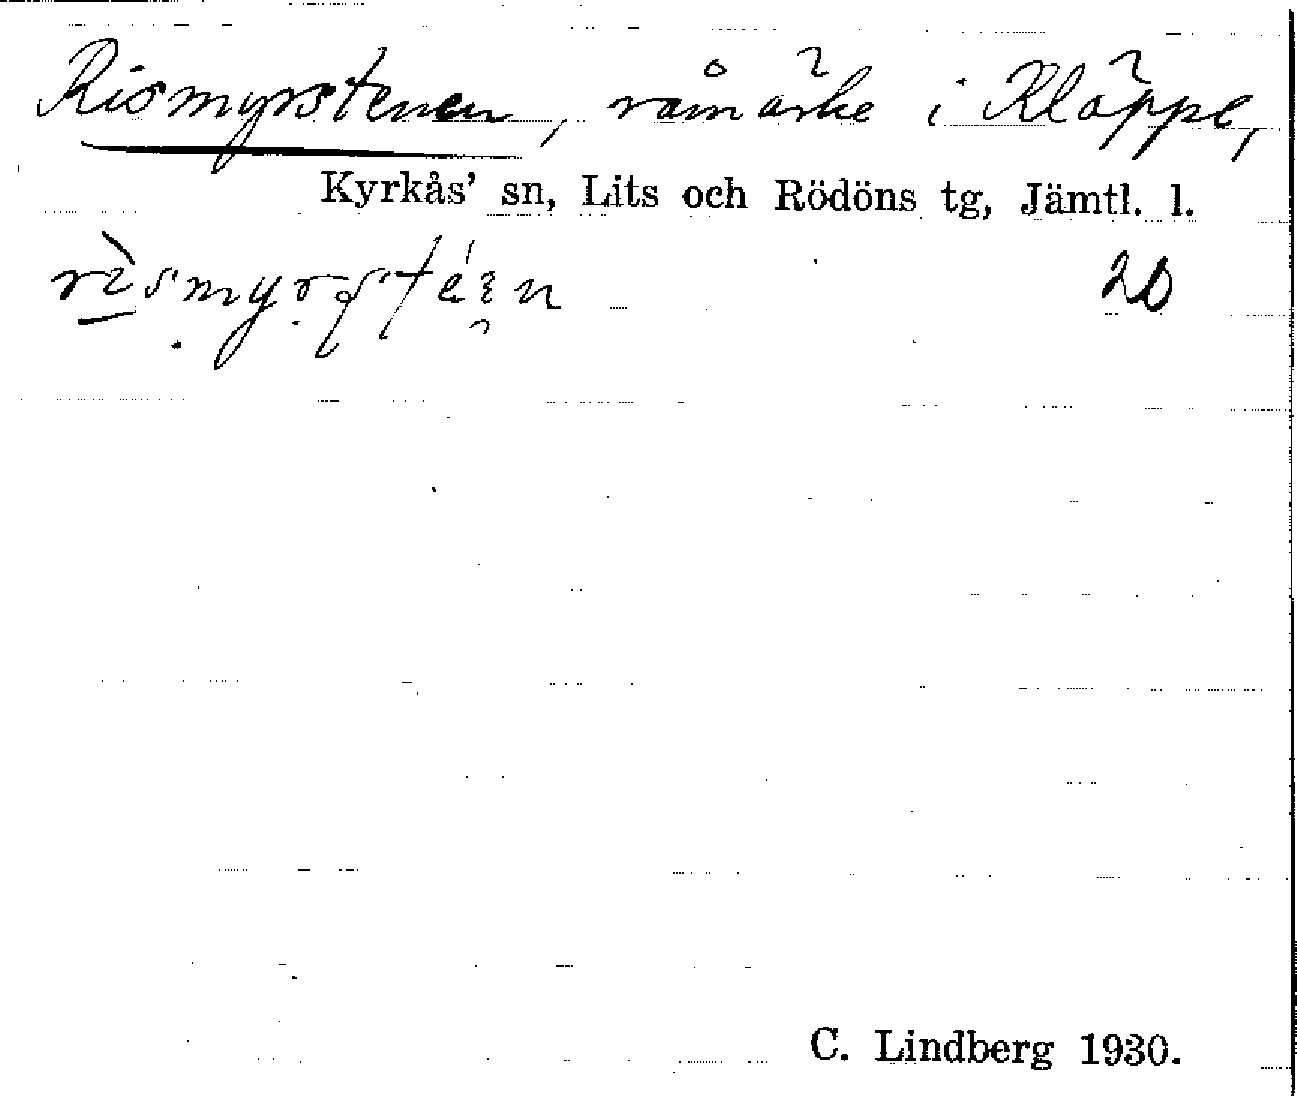 Rismyrstenen, råmärke i Kläppe,
Kyrkås' sn, Lits och Rödöns tg, Jämtl. l.
20
C. Lindberg 1930.